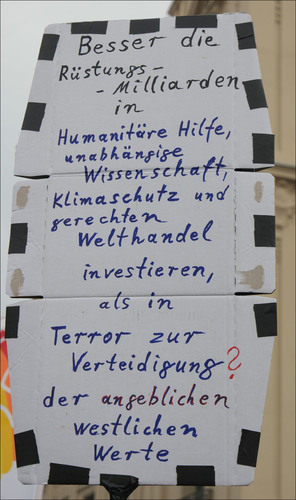 Besser die
Rüstungs-
- Milliarden
in
Humanitäre Hilfe,
unabhängige
Wissenschaft,
Klimaschutz und
gerechten
Welthandel
investieren,
als in
Terror zur
Verteidigung?
der angeblichen
westlichen
Werte